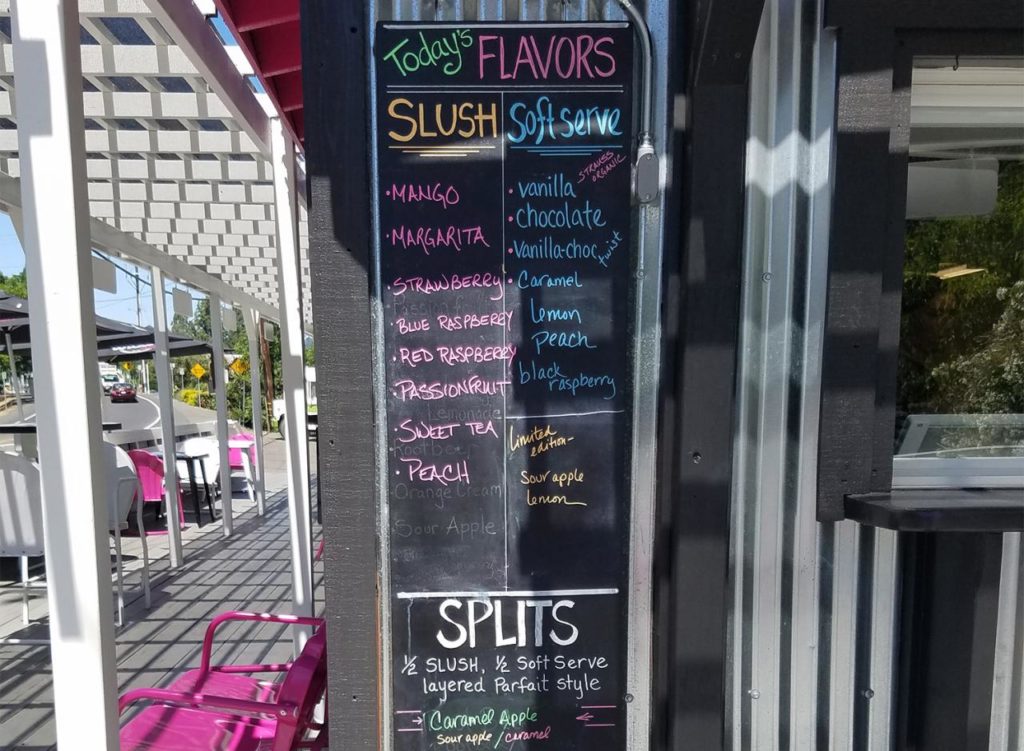 Today's FLAVORS
SLUSH
• MANGO
• MARGARITA
• STRAWBERRY
• BLUE RASPBERRY
• RED RASPBERRY
• PASSIONFRUIT
Lemonade
• SWEET TEA
Root Beer
• PEACH
Orange Cream
Sour Apple
Soft serve
STRAUSS
ORGANIC
• vanilla
• chocolate
• Vanilla-choc twist
• Caramel
lemon
peach
black
raspberry
limited
edition-
Sour apple
lemon
SPLITS
½ SLUSH, ½ Soft Serve
layered Parfait style
Caramel Apple
sour apple / caramel